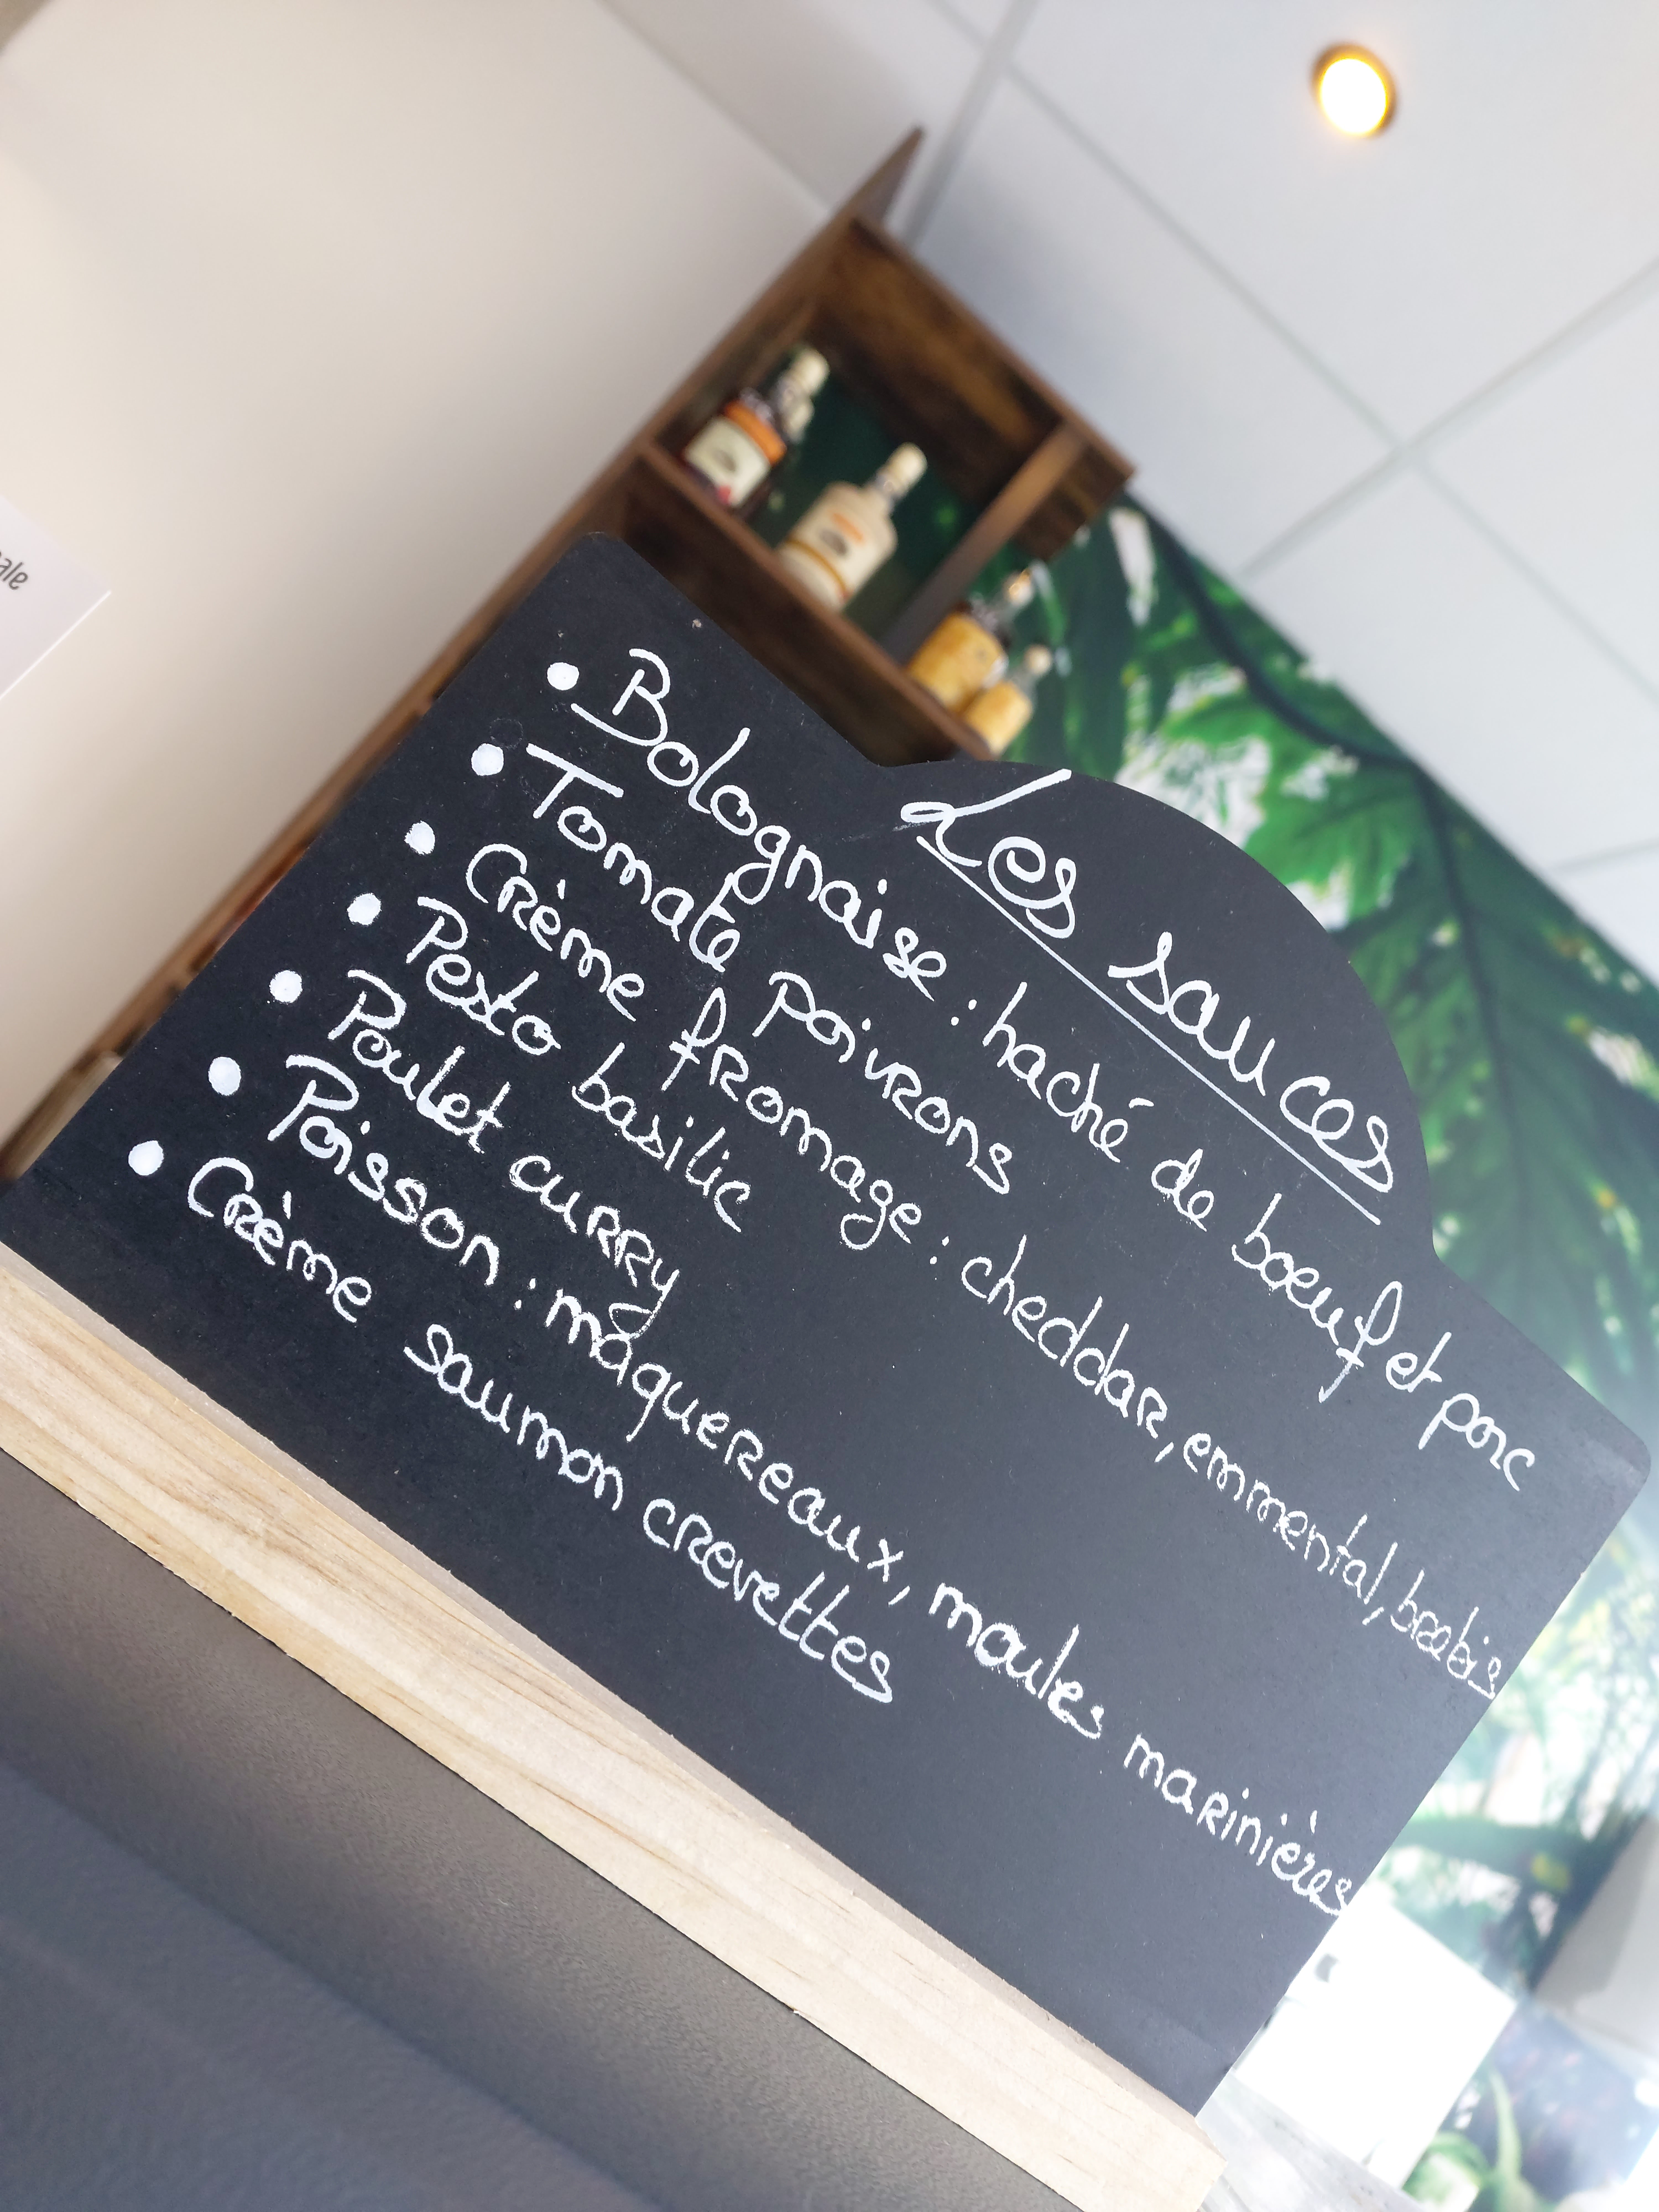 Les sauces
• Bolognaise : haché de boeuf et porc
• Tomate poivrons
• Crème fromage : cheddar, emmental, brebis
• Pesto basilic
• Poulet curry
• Poisson : maquereaux, moules marinières
• Crème saumon crevettes